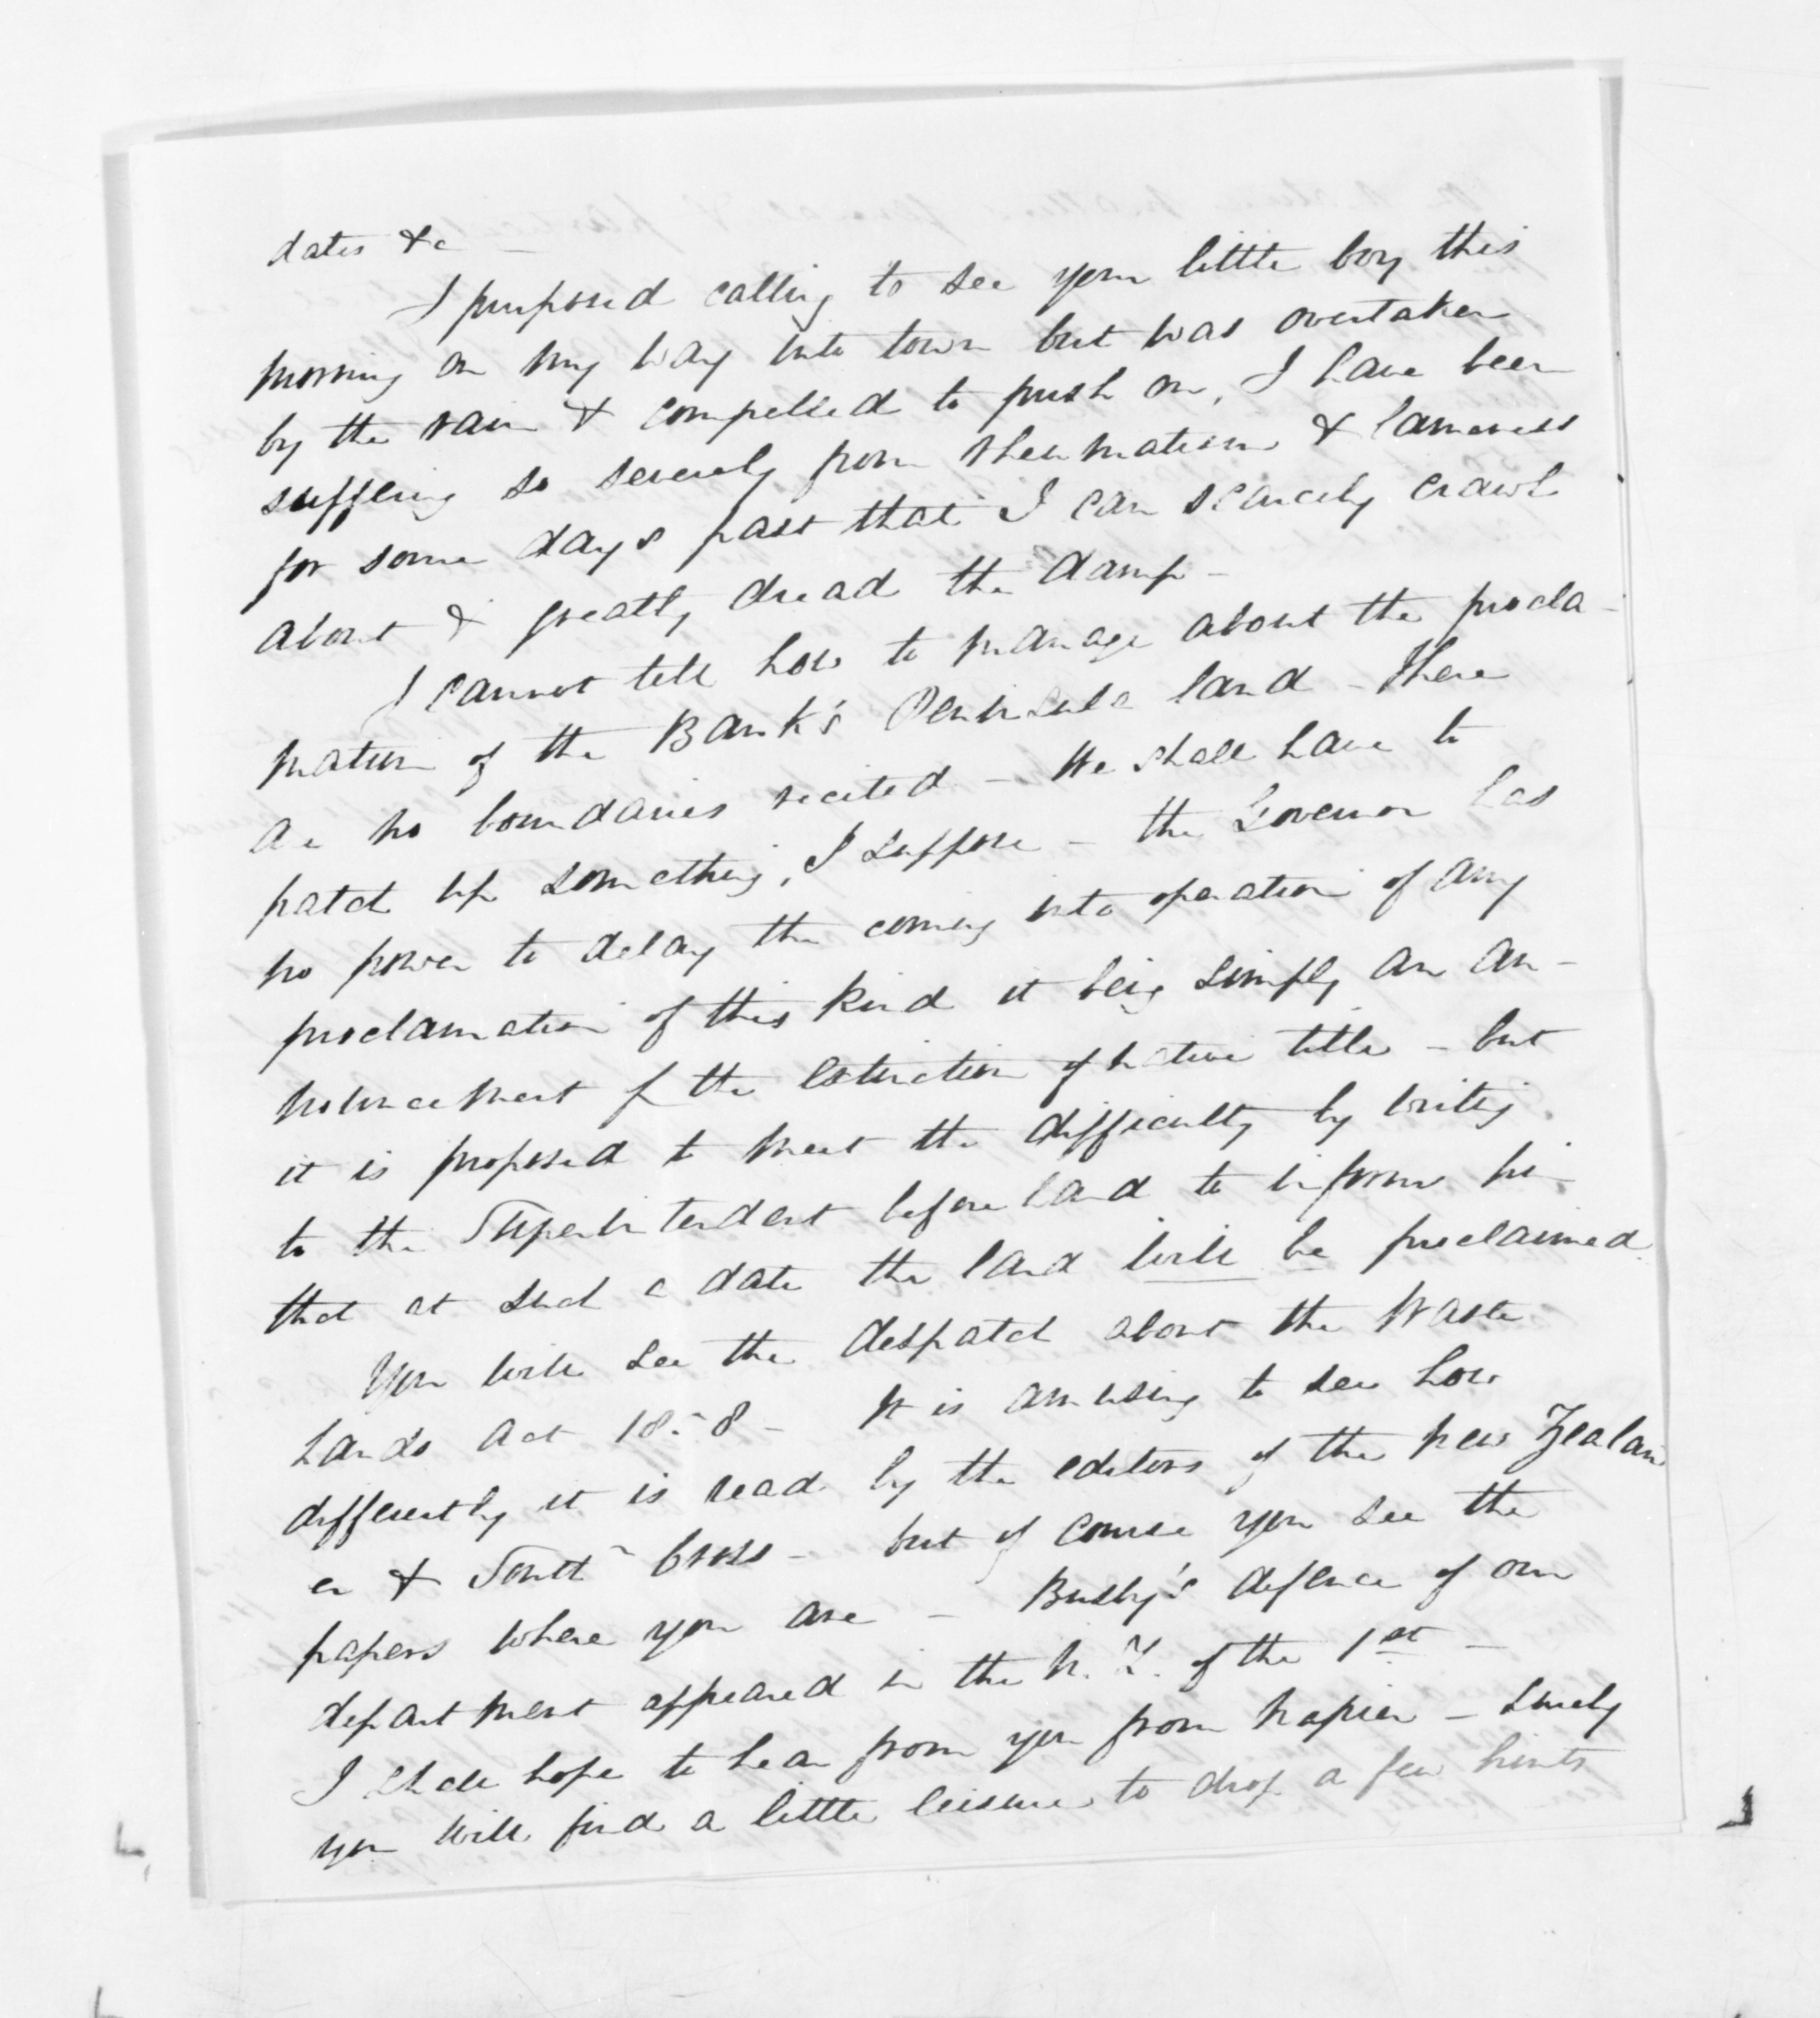 dates &c –
I purposed calling to see your little boy this
morning on my way into town but was overtaken
by the rain & compelled to push on, I have been
suffering so severely from rheumatism & lameness
for some days past that I can scarcely crawl
about & greatly dread the damp –
I cannot tell how to manage about the procla-
mation of the Bank's Peninsula land – There
are no boundaries recited – We shall have to
patch up something, I suppose – the Governor has
no power to delay the coming into operation of any
proclamation of this kind it being simply an an-
nouncement of the extinction of native title – but
it is proposed to meet the difficulty by writing
to the Superintendent beforehand to inform him
that at such a date the land will be proclaimed.
You will see the despatch about the Waste
Lands Act 1858 – It is amusing to see how
differently it is read by the editors of the New Zealand
er & South⁠n Cross – but of course you see the
papers where you are – Busby's defence of our
department appeared in the N. Z. of the 1st –
I shall hope to hear from you from Napier – surely
you will find a little leisure to drop a few hints